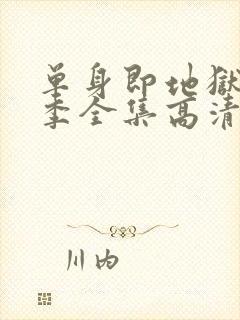 单身即地獄
季全集高清
川内